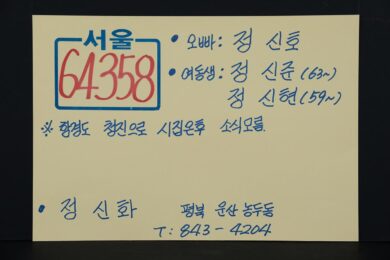 서울
64358
• 오빠: 정 신호
• 여동생: 정 신준 (63~)
정 신현 (59~)
※ 함경도 청진으로 시집온후 소식모름.
• 정 신화 평북 운산 농두동
T: 843-4204